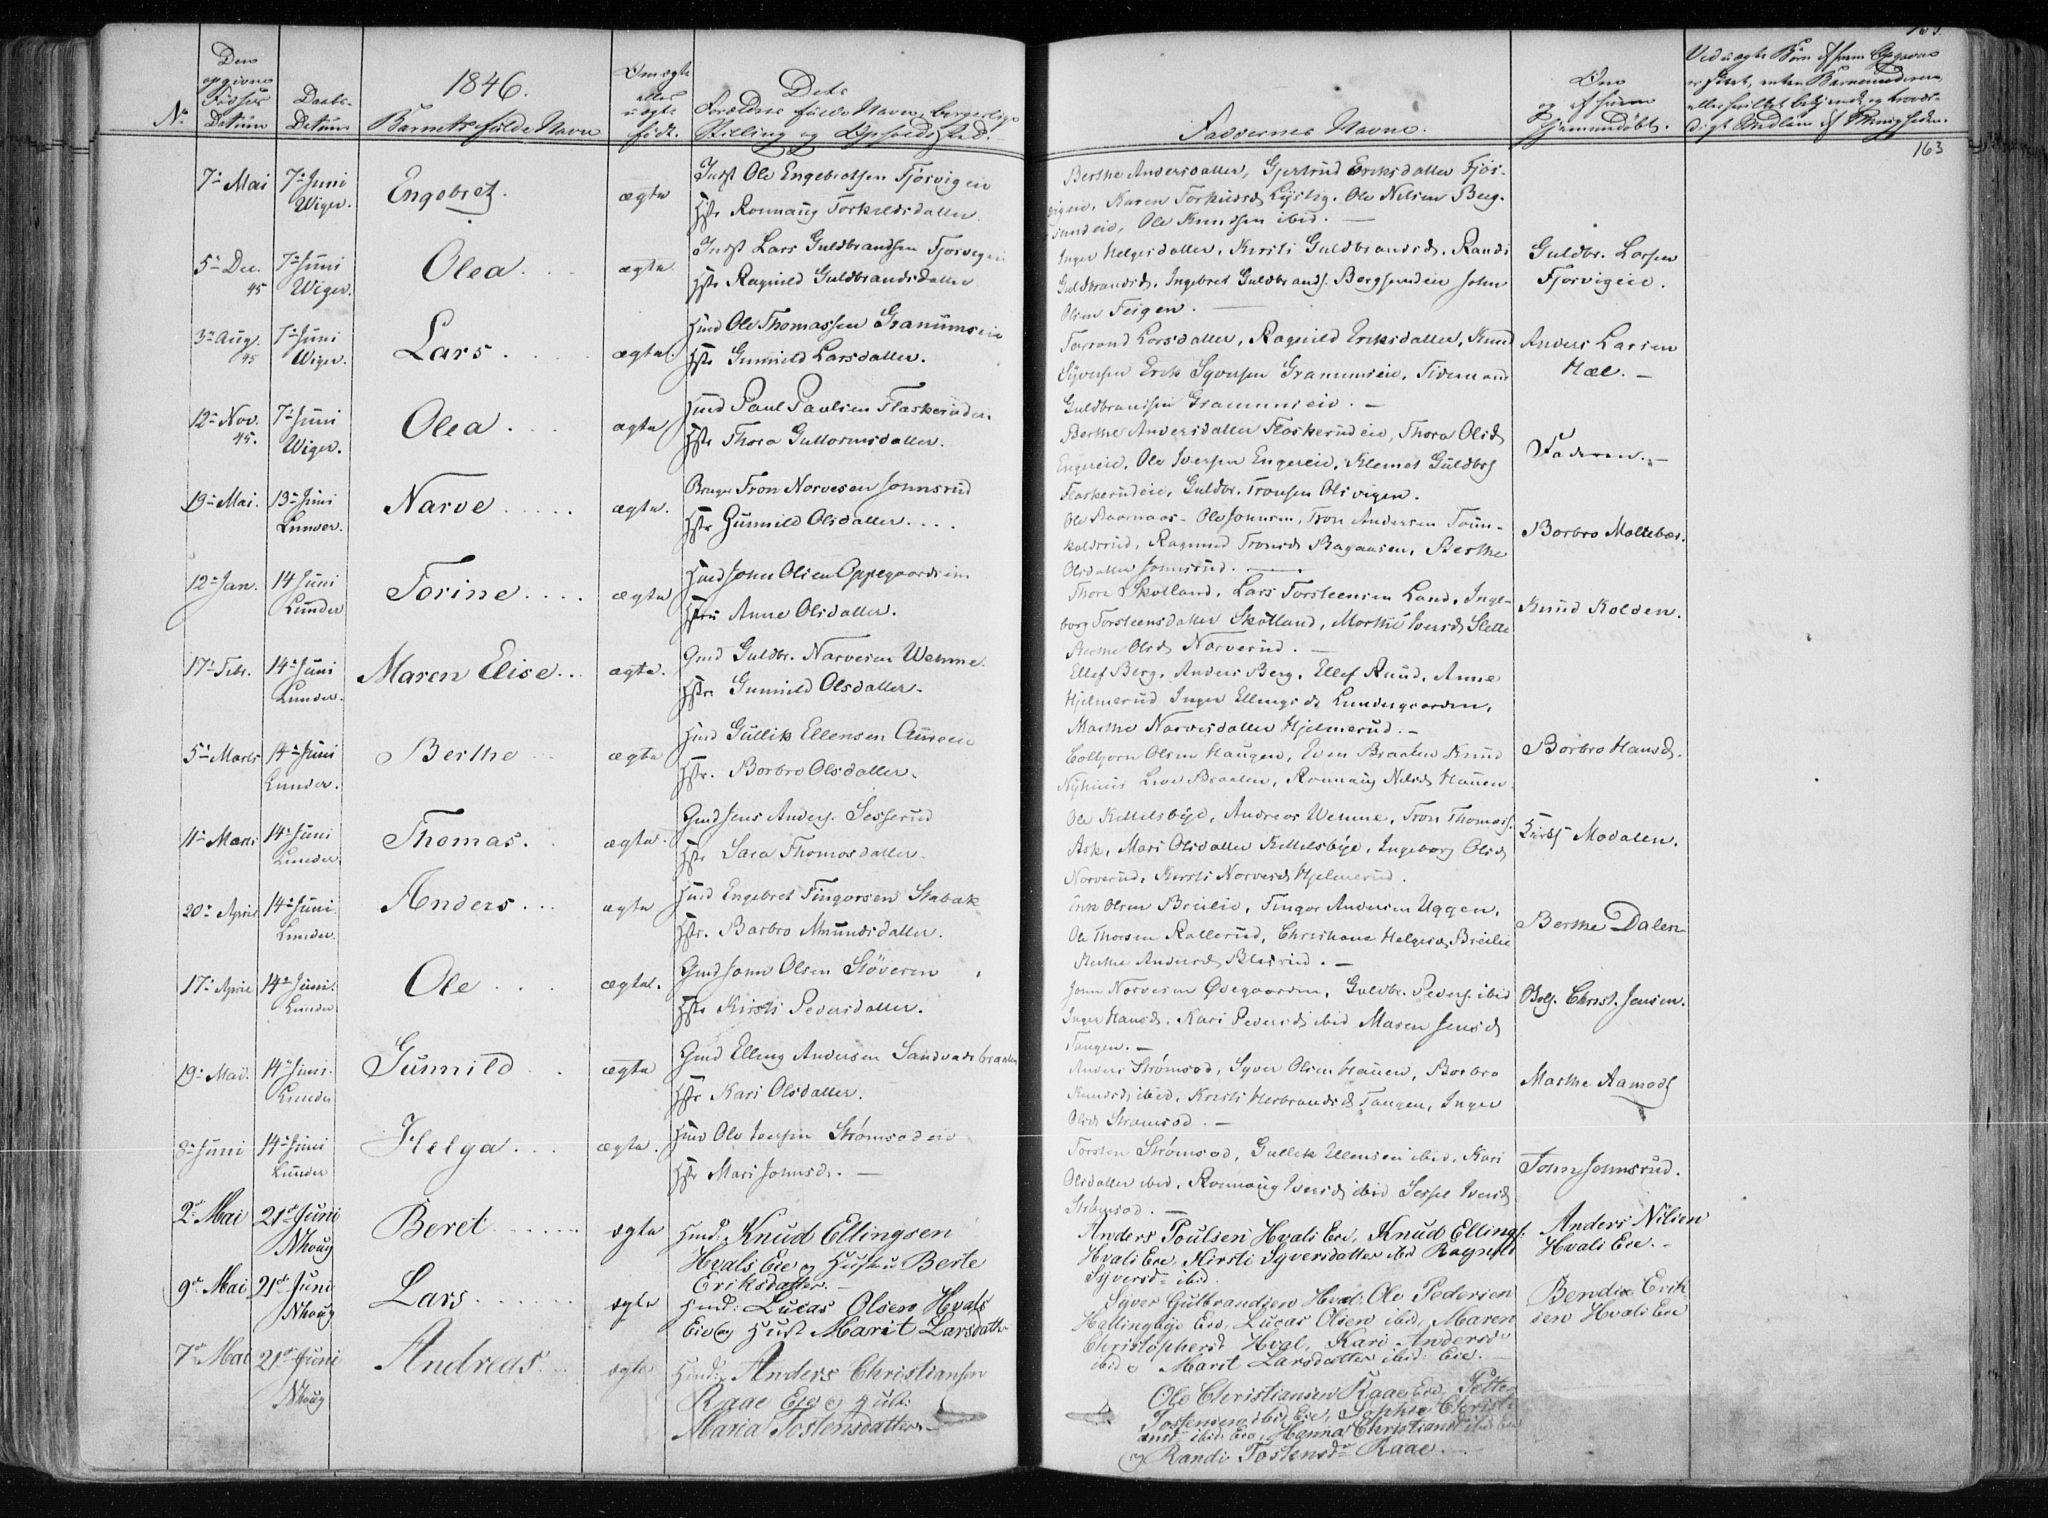 1846.
163
No
Den opgivne Fødsels Datum
Daabs-Datum
Barnets fulde Navn
Om ægte eller uægte født.
Dets Forældres fulde Navne, borgerlige Stilling og Opholds Sted.
Faddernes Navne.
Om og af hvem Hjemmedøbt.
7de Mai
7de Juni Wiger.
Engebret.
ægte
Ole Engebretsen Fjösvigeie
Hstr Ronnaug Torkildsdatter.
Berthe Andersdatter, Gjertrud Eriksdatter Fjös-
vigeie, Karen Torkildsd Lyslog. Ole Nilsen Berg-
sundeie, Ole Knudsen ibid. —
5te Dec. 45
7de Juni Wiger.
Olea
ægte
Lars Guldbrandsen Fjösvigeie
Hstr Ragnild Guldbrandsdatter
Inger Helgesdatter, Kirsti Guldbrandsd, Randi
Guldbrandsd, Ingebret Guldbrands. Bergsundeie John
Olsen Feigen. —
Guldbr. Larsen
Fjösvigeie.
3de Aug. 45
7de Juni Wiger.
Lars
ægte
Hmd Ole Thomassen Granumseie
Hstr Gunnild Larsdatter.
Larsdatter, Ragnild Eriksdatter, Knud
Syversen Erik Syversen Granumseie, Tidemand
Guldbrandsen Granumseie. —
Anders Larsen
Hæl. —
12te Nov. 45.
7de Juni Wiger.
Olea
ægte
Hmd Paul Paulsen Flaskerudeie
Hstr Thora Guttormsdatter.
Berthe Andersdatter Flaskerudeie, Thora Olsd
Engereie, Ole Iversen Engereie, Klemet Guldbrs
Flaskerudeie, Guldbr. Tronsen Olsvigen.
Faderen. —
19de Mai.
13de Juni Lunder.
Narve
ægte.
Bruger Tron Narvesen Johnsrud
Hstr Gunnild Olsdatter
Ole Johnsen, Tron Andersen
Ragnild Tronsd Bagaasen, Berthe
Olsdatter Johnsrud. —
Borbro Moltebær.
12te Jan.
14 Juni Lunder
Torine
ægte
Hmd John Olsen Oppegaardseie
Hstru Anne Olsdatter.
Thore Skotland, Lars Torsteensen Land, Inge-
borg Torsteensdatter Skotland, Marthe Iversd Slette
Berthe Olsd Narverud. —
Knud Kolden.
17de Febr.
14de Juni Lunder.
Maren Elise
ægte.
Gmd Guldbr. Narvesen Wehme.
Hstr. Gunnild Olsdatter.
Ellef Berg, Anders Berg, Ellef Ruud, Anne
Hjelmerud Inger Ellingsd Lundergaarden,
Marthe Narvesdatter Hjelmerud. —
5te Marts
14de Juni Lunder.
Berthe
ægte
Hmd Gullik Ellensen Aureeie
Hstr. Borbro Olsdatter.
Colbjorn Olsen Haugen, Even Braaten Knud
Nyhuus Live Braaten, Ronnaug Nilsd Hauen
Borbro Hansd.
11te Marts
14de Juni Lunder
Thomas.
ægte.
Gmd Jens Anders. Sesserud
Hstr Sara Thomasdatter.
Ole Kittelsbye, Andreas Wehme, Tron Thomass.
Ask, Mari Olsdatter Kittelsbye, Ingeborg Olsd
Narverud, Kirsti Narvesd Hjelmerud.
Modalen.
20de April
14de Juni Lunder
Anders
ægte
Hmd Engebret Fingarsen Stabæk
Hstr. Barbro Amundsdatter.
Erik Olsen Breilie, Fingar Andersen Uggen,
Ole Thorsen Rallerud, Christiane Helgesd Breilie
Berthe Andersd —
Berthe Dalen
17de April
14de Juni Lunder
Ole
ægte.
Gmd John Olsen Stöveren
Hstr Kirsti Pedersdatter.
John Narvesen Ödegaarden, Guldbr. Peders. ibid
Inger Hansd. Kari Pedersd ibid Maren Jensd
Tangen. —
Christ. Jensen.
19de Mai.
14de Juni Lunder
Gunnild
ægte
Gmd Elling Andersen Sandvadsbraaten
Hstr Kari Olsdatter.
Anders Strömsod, Syver Olsen Hauen, Borbro
Knudsd, ibid, Kirsti Herbrandsd Tangen, Inger
Olsd Strömsod. —
Marthe Aamods
8de Juni
14de Juni Lunder
Helga
ægte.
Hmd Ole Iversen Strömsodeie
Hstr Mari Johnsd. —
Torsten Strömsod, Gullik Ellensen ibid, Kari
Olsdatter ibid, Ronnaug Iversd ibid Sessel Iversd
Strömsod. —
Johnsrud.
2de Mai
21de Juni Nhoug
Beret
ægte
Hmd: Knud Ellingsen
Hvals Eie og Hustru Berte
Eriksdatter. —
Anders Poulsen Hvals Eie, Knud Ellings:
Hvals Eie, Kirsti Syversdatter ibid Ragnild
Syversd ibid.
Anders Nilsen
Hvals Eie. —
9de Mai
21de Juni Nhoug
Lars
ægte
Hmd: Lucas Olsen Hvals
Eie og Hust Marit Larsdatter
Syver Gulbrandsen Hval, Ole Pedersen
Hallingbye Eie, Lucas Olsen ibid, Maren
Christophersd Hval, Kari Andersd
ibid og Marit Larsdatter ibid Eie. —
Bendix Erik
sen Hvals Eie
7de Mai
21de Juni Nhoug
Andreas.
ægte
Hmd: Anders Christiansen
Raae Eie og
Maria Tostensdatter —
Ole Christiansen Raae Eie, Petter
Tostensen ibid Eie, Sophie Christi
ansd ibid Eie, Hanna Christiansd ibid Eie
og Randi Tostensd Raae. —